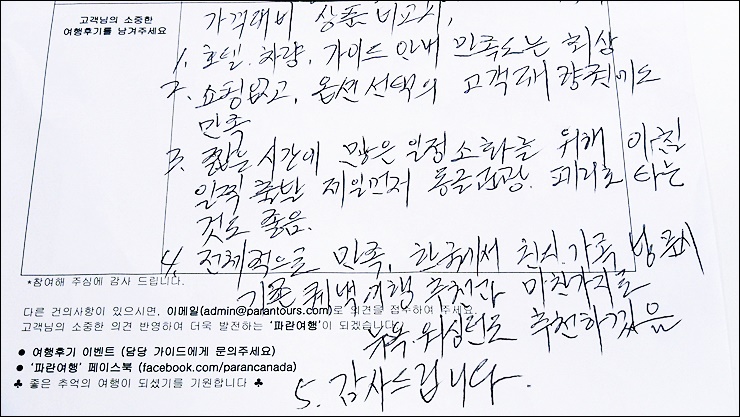 고객님의 소중한
여행후기를 남겨주세요
가격대비 상품 비교시,
1. 호텔. 차량. 가이드 안내 만족도는 최상
2. 쇼핑없고, 옵션선택의 고객재량권에도
만족
3. 짧은 시간에 많은 일정소화를 위해 아침
일찍 출발 제일먼저 동굴관광. 페리호 타는
것도 좋음.
4. 전체적으로 만족, 한국에서 친식.가족 방문시
퀘백여행 추천과 마찬가지로
뉴욕 워싱턴도 추천하겠음
5. 감사드립니다.
*참여해 주심에 감사 드립니다.
다른 건의사항이 있으시면, 이메일(admin@parantours.com)로 의견을 접수하여 주세요.
고객님의 소중한 의견 반영하여 더욱 발전하는 '파란여행'이 되겠습니다
● 여행후기 이벤트 (담당 가이드에게 문의주세요)
● '파란여행' 페이스북 (facebook.com/parancanada)
♣ 좋은 추억의 여행이 되셨기를 기원합니다 ♣